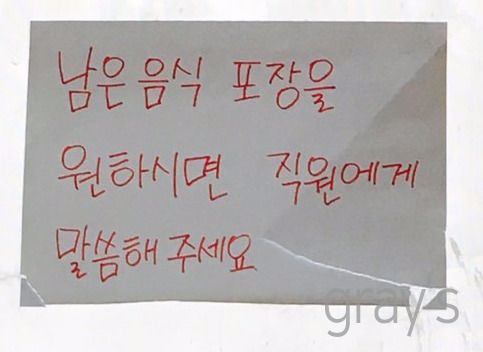 남은 음식 포장을
원하시면 직원에게
말씀해 주세요
gray's